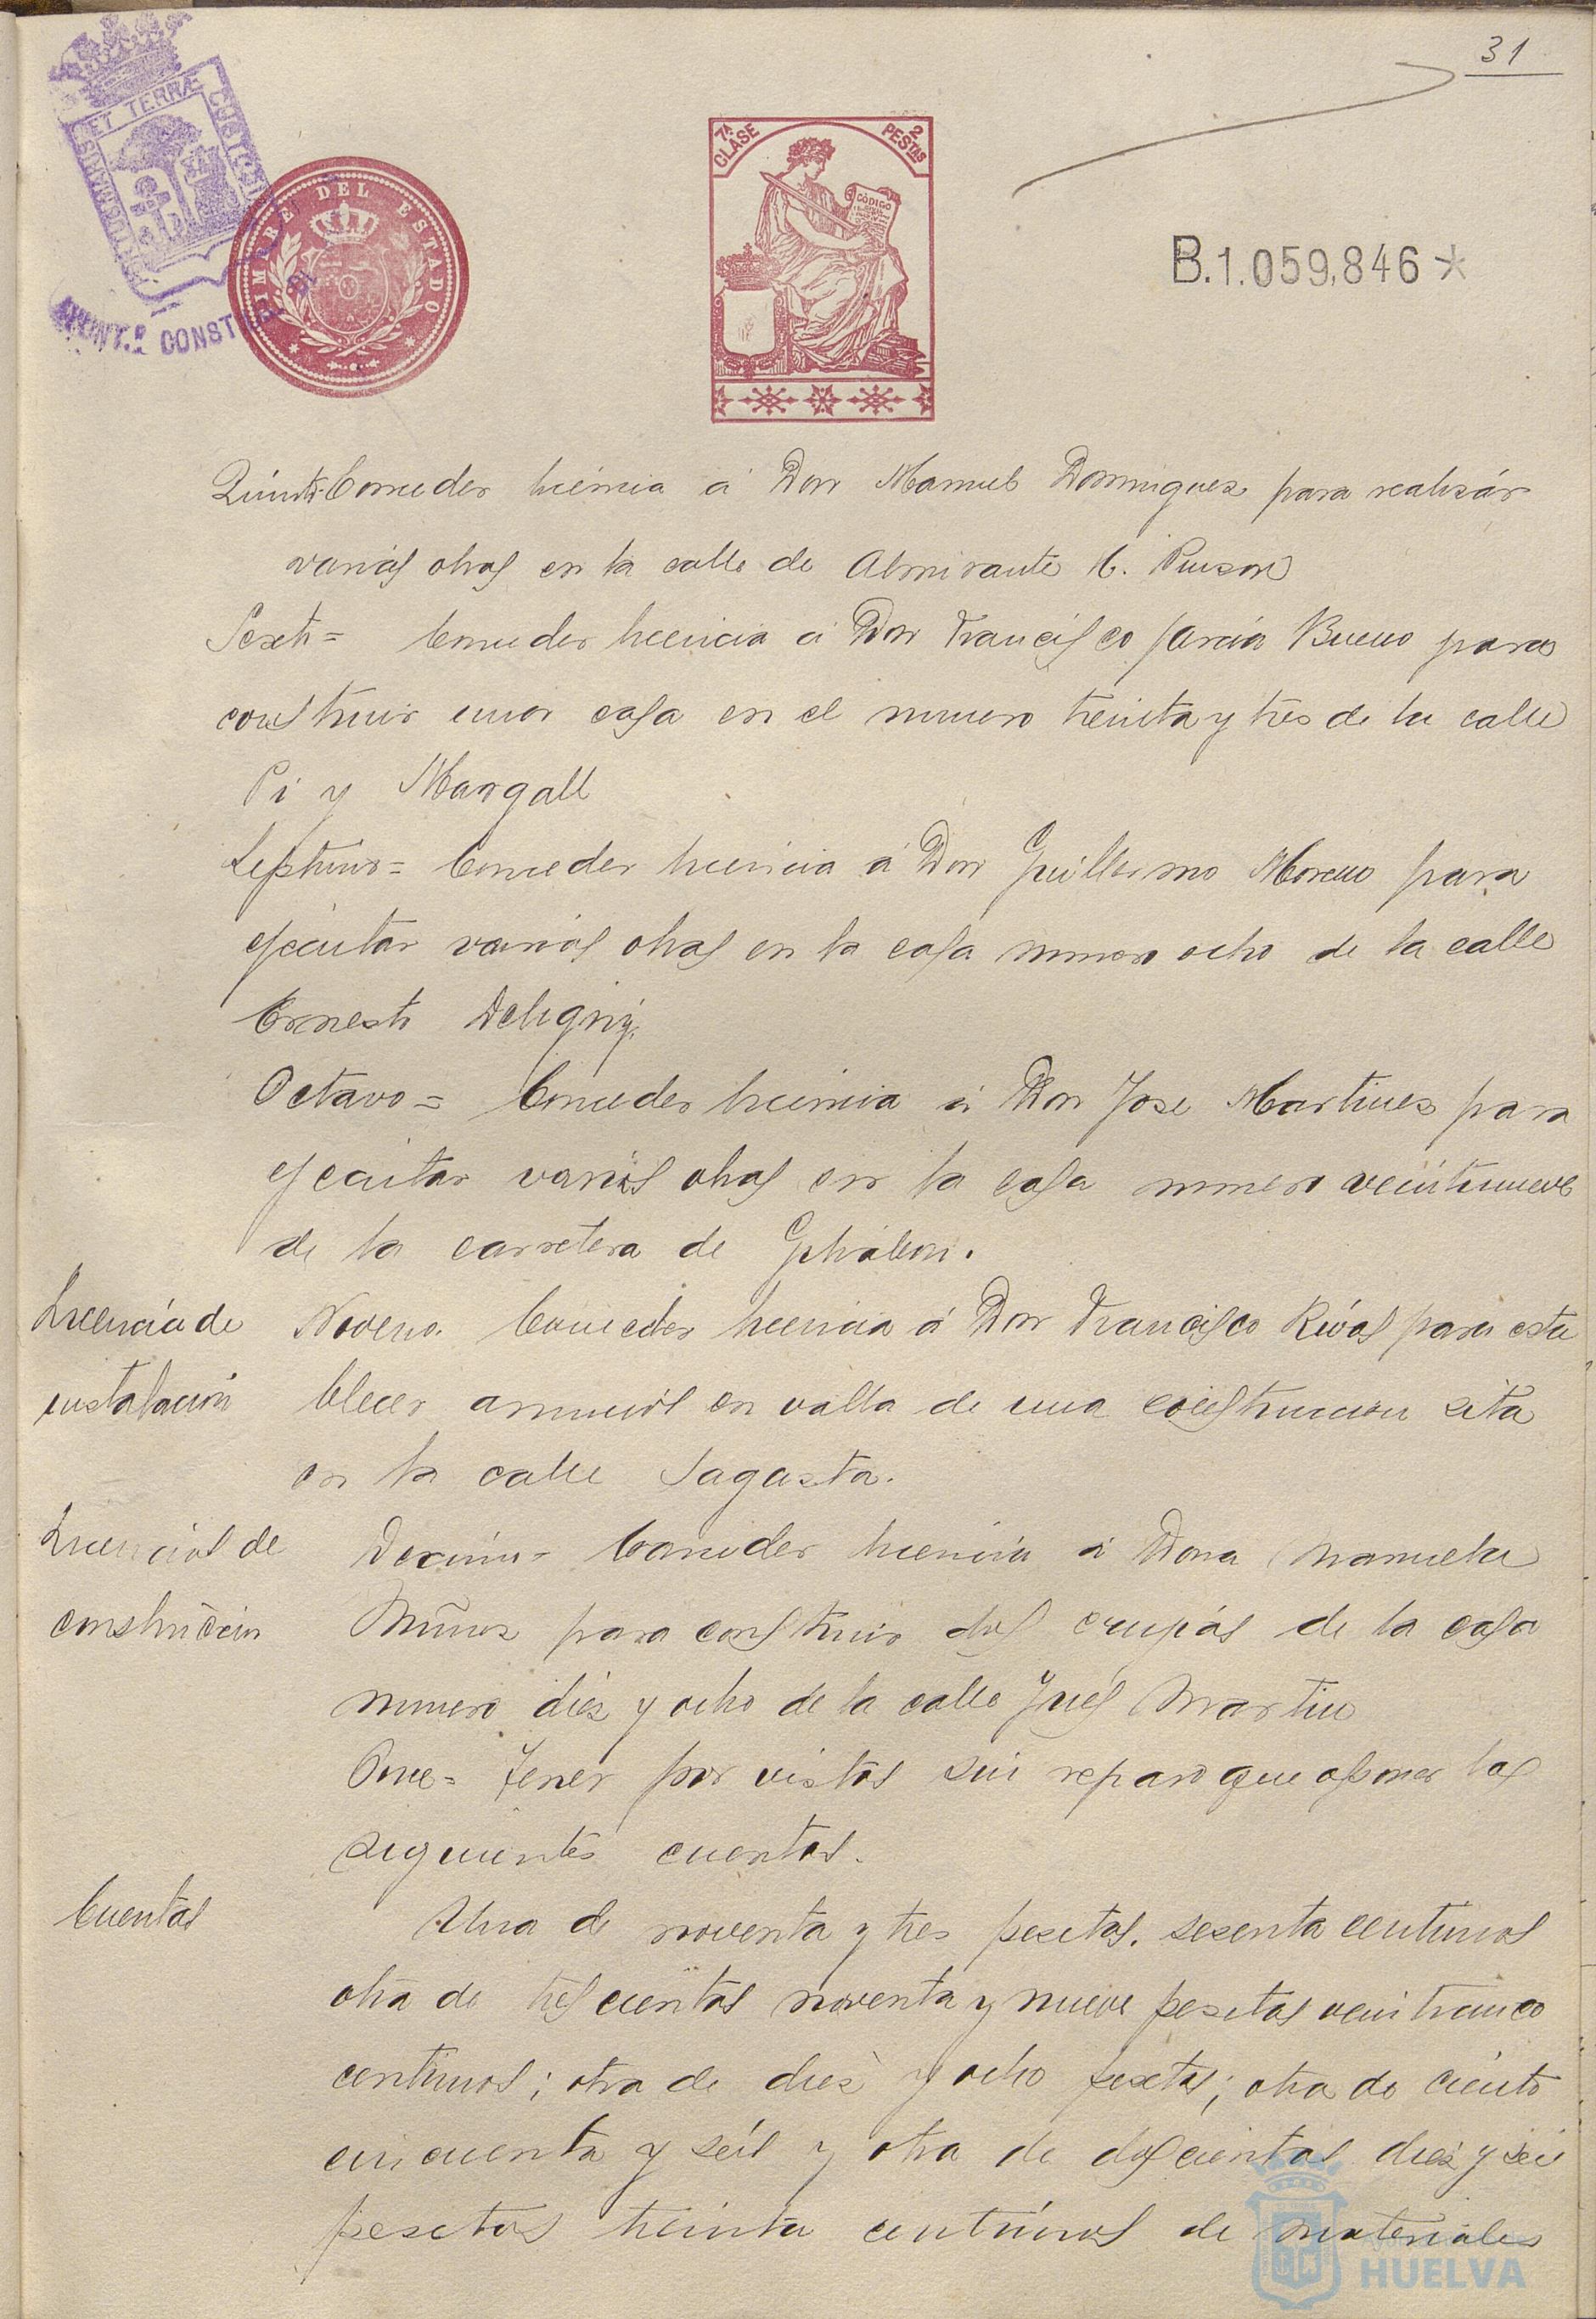 31
PORTUS MARIS ET TERRÆ CUSTODIA
AYUNT.º CONST
TIMBRE DEL ESTADO
7ª CLASE
2 PESTAS
CÓDIGO
B.1.059,846*
Quinto- Conceder licencia á Don Manuel Dominguez para realizár
varias obras en la calle de Almirante H. Pinzon
Sexto= Conceder licencia á Don Francisco García Bueno para
construir una casa en el numero treinta y tres de la calle
Pi y Margall
Septimo= Conceder licencia á Don Guillermo Moreno para
ejecutar varias obras en la casa numero ocho de la calle
Ernesto Deligny.
Octavo= Conceder licencia á Don Jose Martinez para
ejecutar varias obras en la casa numero veintinueve
de la carretera de Gibraleon.
Licencia de
instalación
Noveno. Conceder licencia á Don Francisco Rivas para esta
blecer anuncios en valla de una construccion sita
en la calle Sagasta.
Licencias de
construccion
Decimo= Conceder licencia á Dona Manuela
Muñoz para construir dos de la casa
numero diez y ocho de la calle Ines Martin
Once= Tener por vistas sin reparo que oponer las
siguientes cuentas.
Cuentas
Una de noventa y tres pesetas. sesenta centimos
otra de trescientas noventa y nueve pesetas veinticinco
centimos; otra de diez y ocho pesetas; otra de ciento
cincuenta y seis y otra de doscientas diez y seis
pesetas treinta centimos de materiales
HUELVA